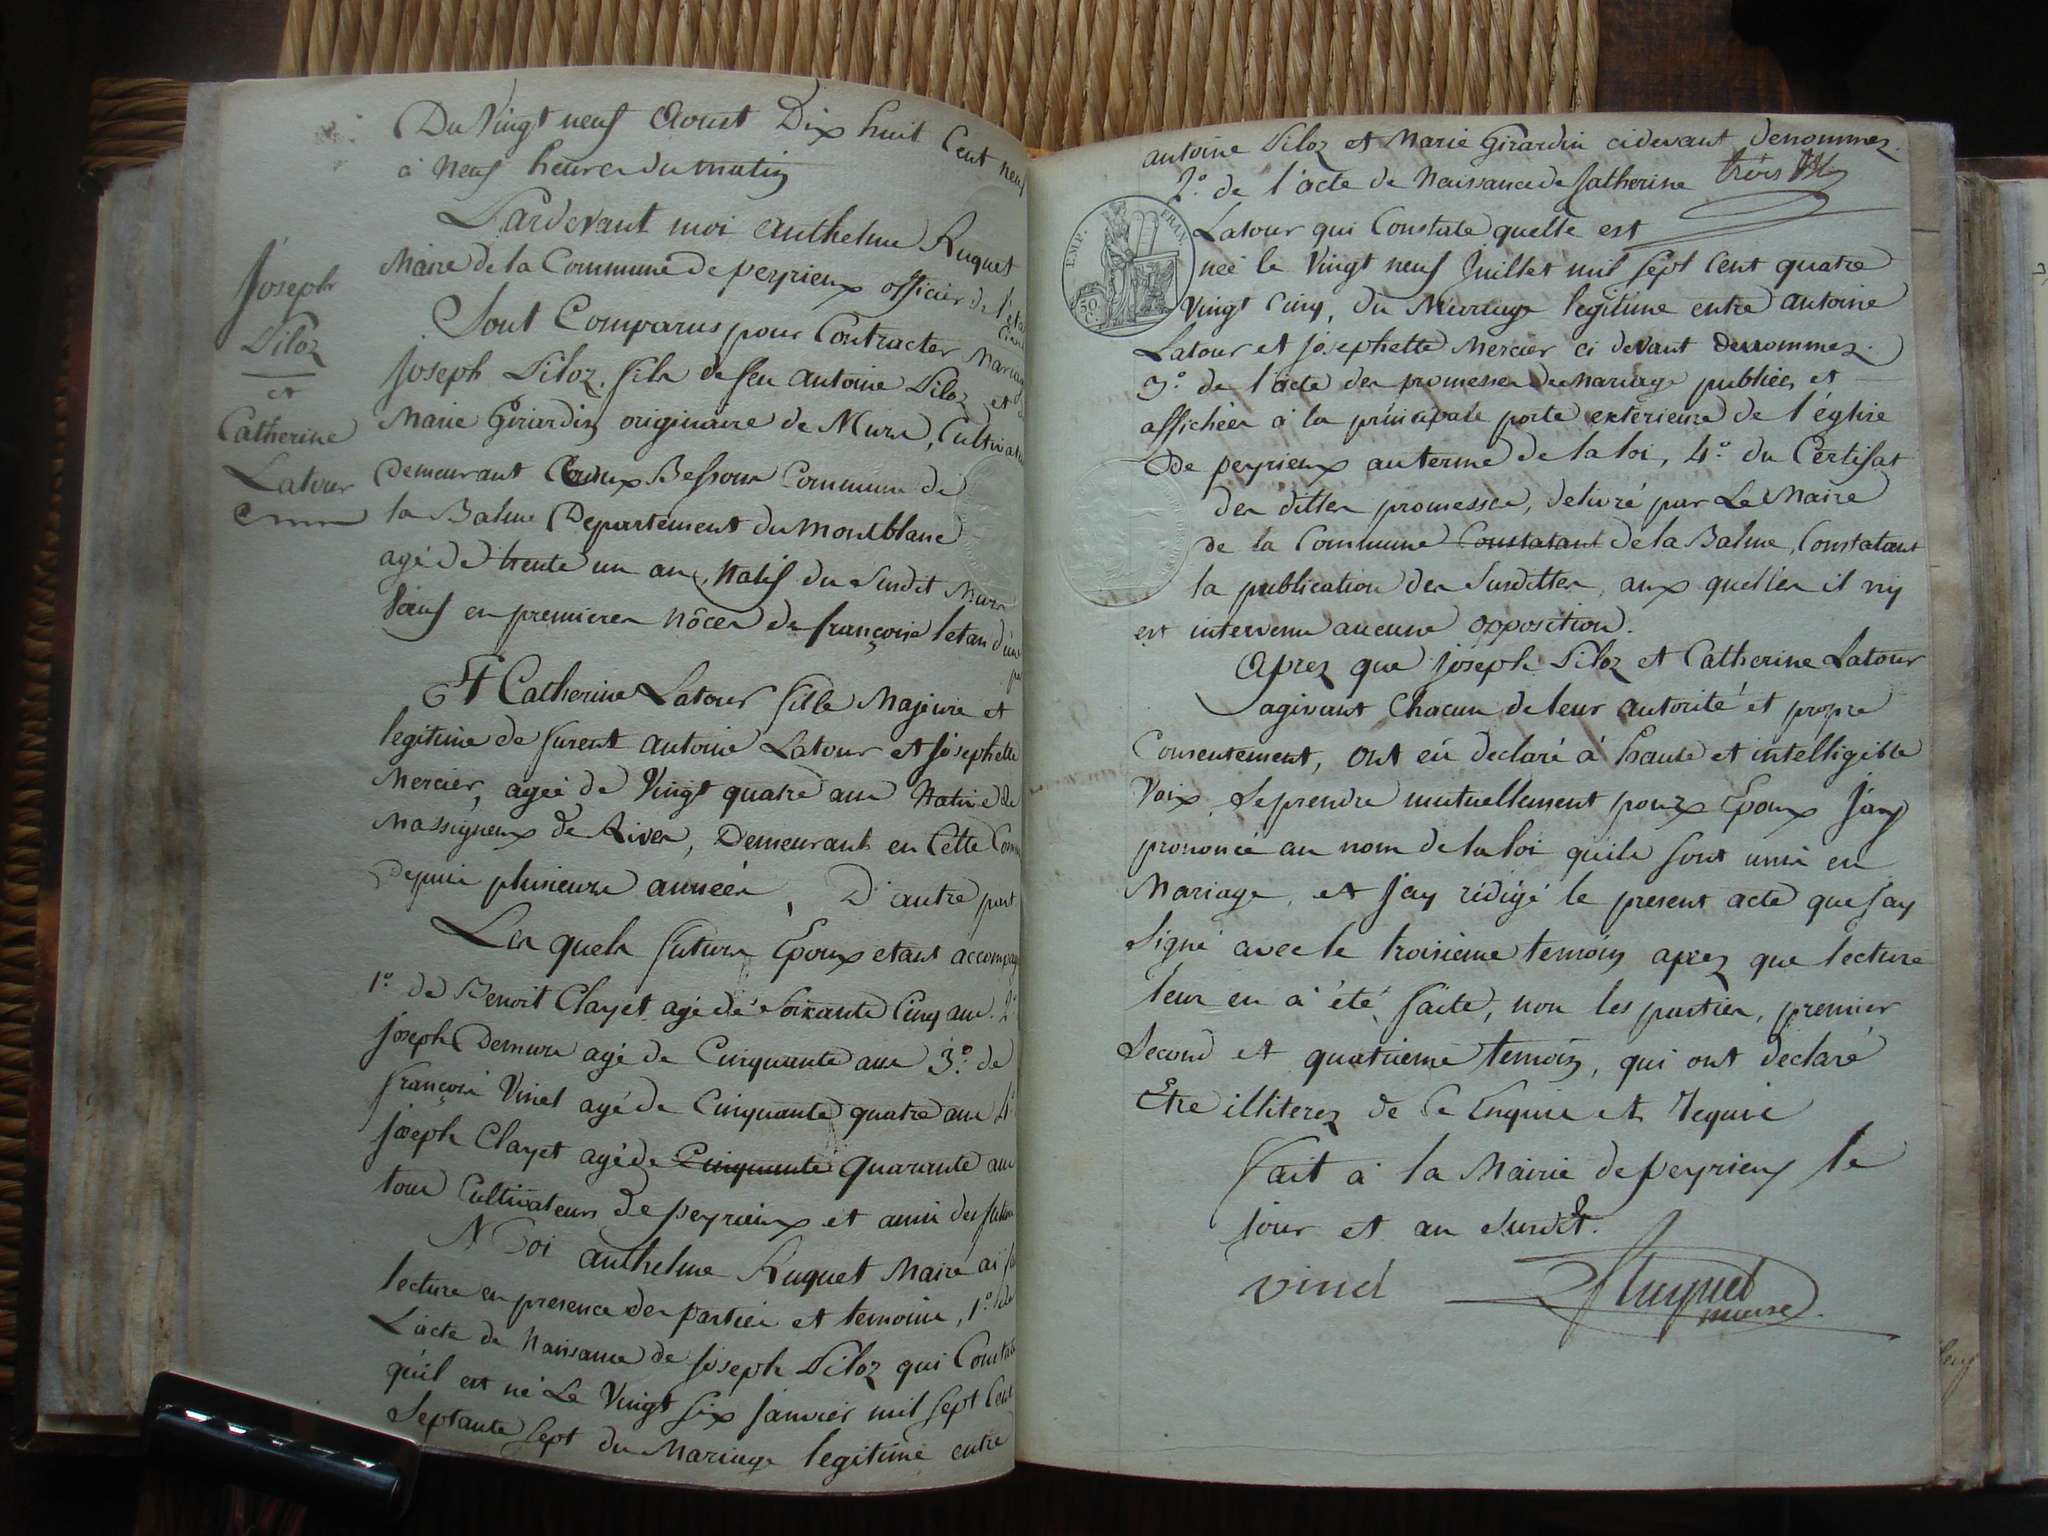 Du Vingt neuf Aoust Dix huit Cent neuf
à Neuf heures du matin
Pardevant moi Anthelme Ruquet
Maire de la Commune de peyrieux officier de l'etat
Civil
Sont Comparus pour Contracter Mariage
Joseph Piloz, fils de feu Antoine Piloz et de
Marie Girardin originaire de Murs, Cultivateur
Demeurant Bessons Commune de
la Balme Departement du Montblanc
agé de trente un ans, Natif du Susdit Murs
Veuf en premieres nôces de françoise d'une
Et Catherine Latour fille Majeure et
legitime de furent Antoine Latour et Josephette
Mercier, agée de Vingt quatre ans Native de
Massigneux de Rives, Demeurant en Cette
Depuis plusieurs années, D'autre part
Les quels futurs Epoux etant
1.o de Benoit Clayet agé de Soixante Cinq ans. 2.o
Joseph Demure agé de Cinquante ans 3.o de
françois Vinet agé de Cinquante quatre ans 4.o
Joseph Clayet agé de Cinquante Quarante ans
tous Cultivateurs de peyrieux et amis des futurs
Moi Anthelme Ruquet Maire ai
lecture en presence des parties et temoins, 1.o de
L'acte de Naissance de Joseph Piloz qui Constate
qu'il est né Le Vingt Six Janvier mil Sept Cent
Septante Sept du Mariage legitime entre
Joseph
Piloz
et
Catherine
Latour
antoine Piloz et Marie Girardin cidevant denommez.
2.o de l'acte de Naissance de Catherine
Latour qui Constate quelle est
née le Vingt neuf Juillet mil Sept Cent quatre
Vingt Cinq, du Mariage legitime entre antoine
Latour et Josephette Mercier ci devant denommez.
3.o de l'acte des promesses de Mariage publiées et
affichées à la principale porte exterieure de l'église
de peyrieux au terme de la loi, 4.o du Certifat
des dittes promesses, delivré par Le Maire
de la Commune Constatant de la Balme, Constatant
la publication des Susdittes, aux quelles il ny
est intervenu aucune opposition.
Aprez que Joseph Piloz et Catherine Latour
agissant Chacun de leur autorité et propre
Consentement, ont eû declaré à haute et intelligible
Voix, Se prendre mutuellement pour Epoux J'ay
prononcé au nom de la loi quils Sont unis en
Mariage, et J'ay redigé le present acte que J'ay
Signé avec le troisieme temoin aprez que lecture
leur en a été faite, non les parties, premier
Second et quatrieme temoin, qui ont declaré
Etre illiterez de Ce Enquis et Requis
Fait à la Mairie de peyrieux le
Jour et an Susdit.
vinet
Ruquet
maire
EMP. FRAN.
50 C.